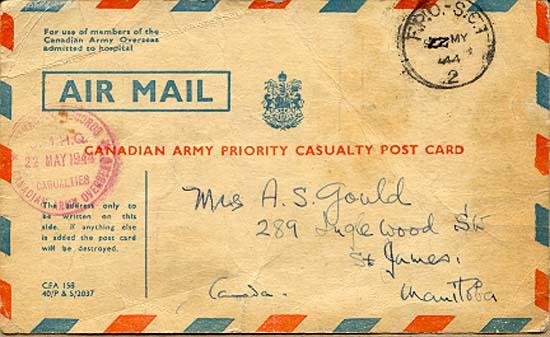 For use of members of the
Canadian Army Overseas
admitted to hospital
AIR MAIL
F.P.O.-S.C.1
22 MY
44
2
RECORDS
C.M.H.Q.
22 MAY 1944
CASUALTIES
CANADIAN ARMY OVERSEAS
CANADIAN ARMY PRIORITY CASUALTY POST CARD
Mrs A. S. Gould
289 Inglewood St
St James,
Manitoba
Canada.
The address only to
be written on this
side. If anything else
is added the post card
will be destroyed.
CFA 158
40/P & S/2037